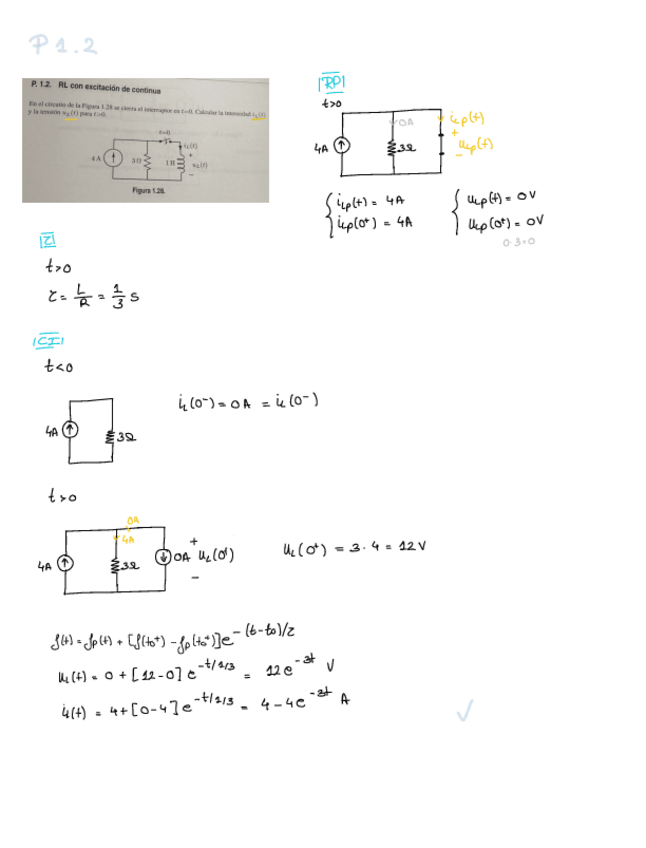 P 1.2
P. 1.2. RL con excitación de continua
En el circuito de la Figura 1.28 se cierra el interruptor en t=0. Calcular la intensidad i_L(t)
y la tensión u_L(t) para t>0.
t=0
i_L(t)
4 A
3 Ω
1 H
+
u_L(t)
-
Figura 1.28.
|RP|
t>0
4A
0A
3Ω
i_Lp(t)
+
u_Lp(t)
-
i_Lp(t) = 4A
i_Lp(0⁺) = 4A
u_Lp(t) = 0V
u_Lp(0⁺) = 0V
0·3=0
|Z|
t>0
τ = L/R = 1/3 s
|CI|
t<0
4A
3Ω
i_L(0⁻) = 0A = i_L(0⁻)
t>0
0A
4A
4A
3Ω
0A
+
u_L(0⁺)
-
u_L(0⁺) = 3·4 = 12V
f(t) = f_p(t) + [f(t₀⁺) - f_p(t₀⁺)]e^-(t-t₀)/τ
u_L(t) = 0 + [12-0] e^-t/1/3 = 12e^-3t V
i_L(t) = 4+[0-4]e^-t/1/3 = 4-4e^-3t A
✓